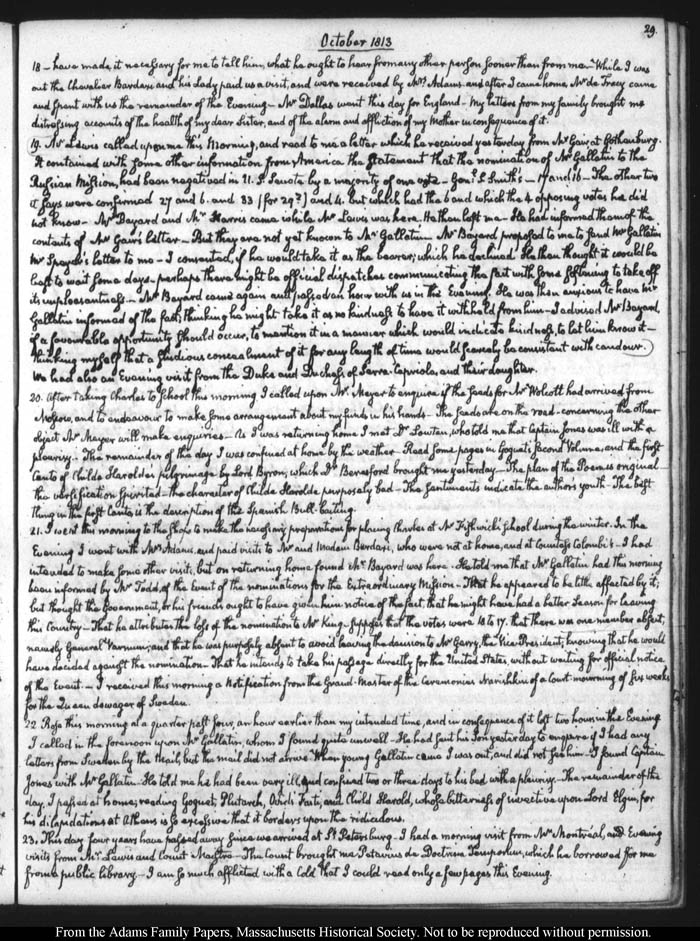 29.
October 1813
18 - have made it necessary for me to tell him, what he ought to hear from any other person sooner than from me - While I was
out the Chevalier Bardaxi and his Lady paid us a visit, and were received by Mrs Adams. and after I came home Mr de Tracy came
and spent with us the remainder of the Evening - Mr Dallas went this day for England - My letters from my family brought me
distressing accounts of the health of my dear Sister, and of the alarm and affliction of my Mother in consequence of it.
19. Mr Lewis called upon me this Morning, and read to me a letter which he received yesterday from Mr Gair, at Gothenburg.
It contained with some other information from America the statement that the nomination of Mr Gallatin to the
Russian Mission, had been negatived in U.S. Senate by a majority of one vote - Genl. S. Smith's - 17 and 16 - The other two
it says were confirmed 27 and 6. and 33 [for 29?] and 4. but which had the 6 and which the 4 opposing votes he did
not know - Mr Bayard and Mr Harris came while Mr Lewis was here. He then left me - He had informed them of the
contents of Mr Gair's letter - But they are not yet known to Mr Gallatin. Mr Bayard proposed to me to send Mr Gallatin
Mr Speyer's letter to me - I consented, if he would take it as the bearer; which he declined. He then thought it would be
best to wait some days - perhaps there might be official dispatches communicating the fact with some softening to take off
its unpleasantness - Mr Bayard came again and passed an hour with us in the Evening. He was then anxious to have Mr
Gallatin informed of the fact; thinking he might take it as no kindness to have it withheld from him - I advised Mr Bayard,
if a favourable opportunity should occur, to mention it in a manner which would indicate kindness, to let him know it -
thinking myself that a studious concealment of it for any length of time would scarcely be consistent with candour.
We had also an Evening visit from the Duke and Duchess, of Serra-Capriola, and their daughter.
20. After taking Charles to School this morning I called upon Mr. Meyer to enquire if the seeds for Mr Wolcott had arrived from
Moscow, and to endeavour to make some arrangement about my funds in his hands - The seeds are on the road - concerning the other
object Mr Meyer will make enquiries - As I was returning home I met Dr Lawton, who told me that Captain Jones was ill with a
pleurisy. The remainder of the day I was confined at home by the weather - Read some pages in Goguet's second Volume, and the first
Canto of Childe Harold's pilgrimage by Lord Byron, which Dr Beresford brought me yesterday - The plan of the Poem is original -
the versification spirited - the character of Childe Harolde purposely bad - The sentiments indicate the author's youth - The best
thing in the first Canto is the description of the Spanish Bull-baiting.
21. I went this morning to the shops to make the necessary preparations for placing Charles at Mr Fishwick's School during the winter. In the
Evening I went with Mrs Adams, and paid visits to Mr and Madam Bardaxi, who were not at home, and at Countess Colombi's - I had
intended to make some other visits; but on returning home found Mr Bayard was here - He told me that Mr Gallatin had this morning
been informed by Mr Todd, of the Event of the nominations for the Extraordinary Mission - That he appeared to be little affected by it;
but thought the Government, or his friends ought to have given him notice of the fact, that he might have had a better Season for leaving
this Country - That he attributes the loss of the nomination to Mr King - supposes that the votes were 18 to 17. that there was one member absent;
namely General Varnum; and that he was purposely absent to avoid leaving the decision to Mr Gerry, the Vice-President; knowing that he would
have decided against the nomination - That he intends to take his passage directly for the United States, without waiting for official notice
of the Event - I received this morning a Notification from the Grand-Master of the Ceremonies Narishkin of a Court mourning of six weeks
for the Queen dowager of Sweden.
22. Rose this morning at a quarter past four, an hour earlier than my intended time, and in consequence of it lost two hours in the Evening
I called in the forenoon upon Mr Gallatin, whom I found quite unwell - He had sent his Son yesterday to enquire if I had any
letters from Sweden by the Mail, but the mail did not arrive. When young Gallatin came I was out, and did not see him - I found Captain
Jones with Mr Gallatin - He told me he had been very ill, and confined two or three days to his bed with a pleurisy - The remainder of the
day, I passed at home; reading Goguet, Plutarch, Ovid's Fasti, and Child Harold, whose bitterness of invective upon Lord Elgin, for
his dilapidations at Athens is so excessive, that it borders upon the ridiculous.
23. This day four years have passed away since we arrived at St Petersburg - I had a morning visit from Mr Montréal, and Evening
visits from Mr Lewis and Count Maistre - The Count brought me Petavius de Doctrina Temporum, which he borrowed for me
from a public library - I am so much afflicted with a Cold that I could read only a few pages this Evening.
From the Adams Family Papers, Massachusetts Historical Society. Not to be reproduced without permission.